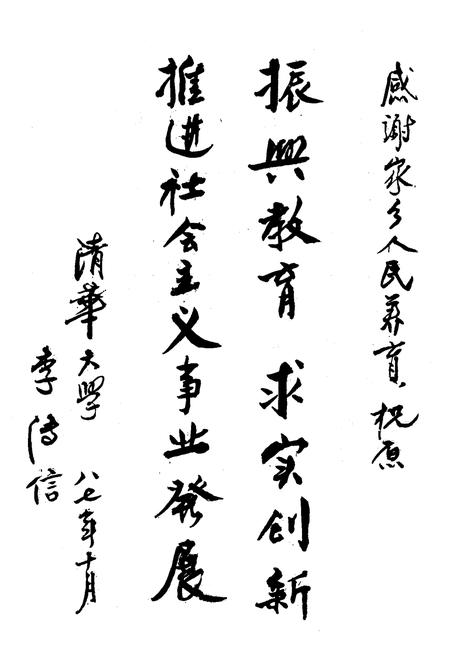 感谢家乡人民养育祝愿
振興教育 求实创新
推进社会主义事业發展
清華大學 八七年十月
李传信